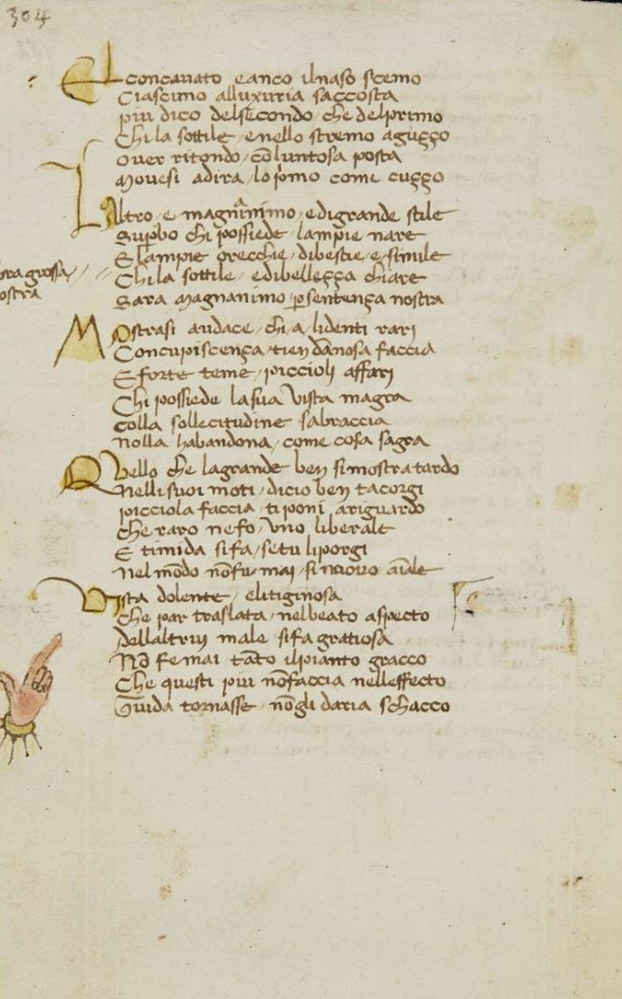 304
El concavato e anco il naso scemo
Ciascuno alluxuria saccosta
piu dico del secondo / che del primo
Chi la sottile / e nello stremo aguzzo
over ritondo / cō
movesi adira / lo p̄mo come cuzzo
Laltro / e magnanimo / e di grande stile
Sup̄bo chi possiede / lampie nare
E lampie orecchie / di bestie / e simile
Chi la sottile / e di bellezza chiare
Sara magnanimo / p̄ sentenza nostra
ora grossa //
ostra
Mostrasi audace / chi / a / li denti rari
Concupiscenza / tien dānosa faccia
E forte teme / piccioli affari
Chi possiede la sua vista magra
colla sollecitudine sabraccia
nolla habandona / come cosa sagra
Quello che la grande ben si mostra tardo
nelli suoi moti / dicio ben tacorgi
picciola faccia / ti poni a riguardo
che raro ne fo / uno liberale
E timida si fa / se tu li porgi
nel mōdo nō fu mai / si nuovo
Vista dolente / e litiginosa
che par traslata / nel beato aspecto
dellaltrui male / si fa gratiosa
Nō fe mai tāto il pianto gracco
Che questi piu nō faccia nelleffecto
Guida tornasse / nō gli daria schacco